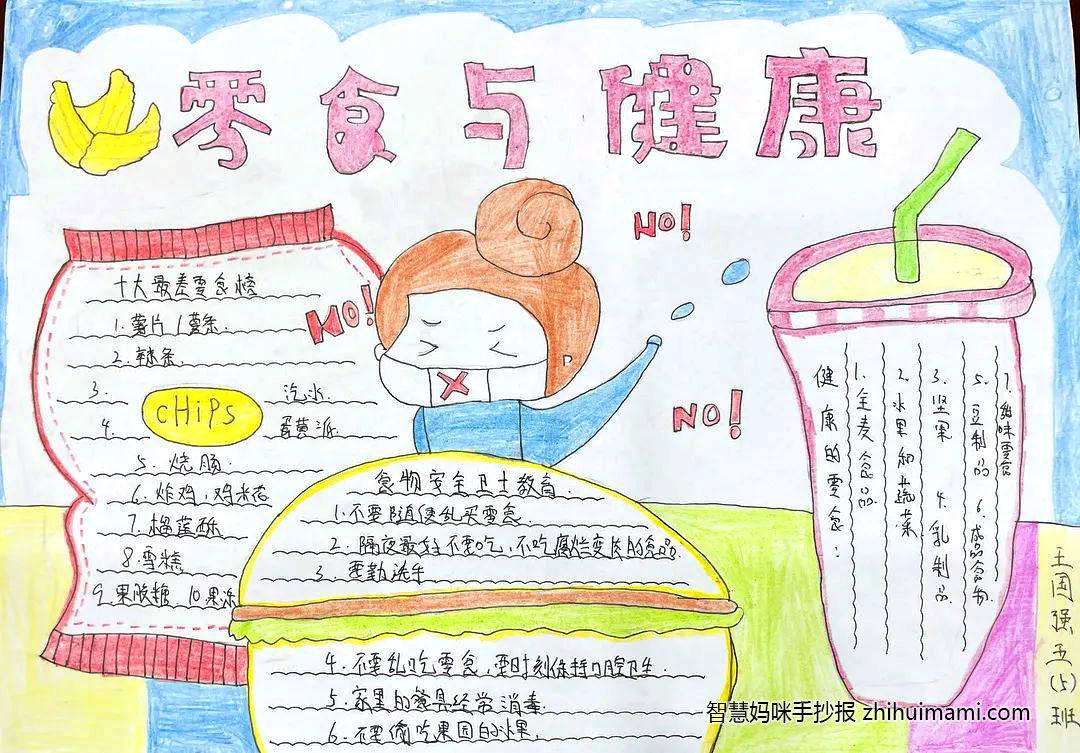 零食与健康
NO!
NO!
NO!
十大最差零食榜
1.薯片/薯条.
2.辣条.
3. 汽水.
4. 蛋黄派.
CHiPS
5.烧肠.
6.炸鸡,鸡米花
7.榴莲酥
8.雪糕
9.果脯糖 10果冻
食物安全卫士教育.
1.不要随便乱买零食.
2.隔夜最好不要吃,不吃腐烂变质的食品.
3.要勤洗手
4.不要乱吃零食,要时刻保持口腔卫生.
5.家里的餐具经常消毒.
6.不要偷吃果园的水果.
健康的零食:
1.全麦食品
2.水果和蔬菜
3.坚果 4.乳制品
5.豆制品 6.成品谷物
7.零食
王国强五(5)班
智慧妈咪手抄报 zhihuimami.com